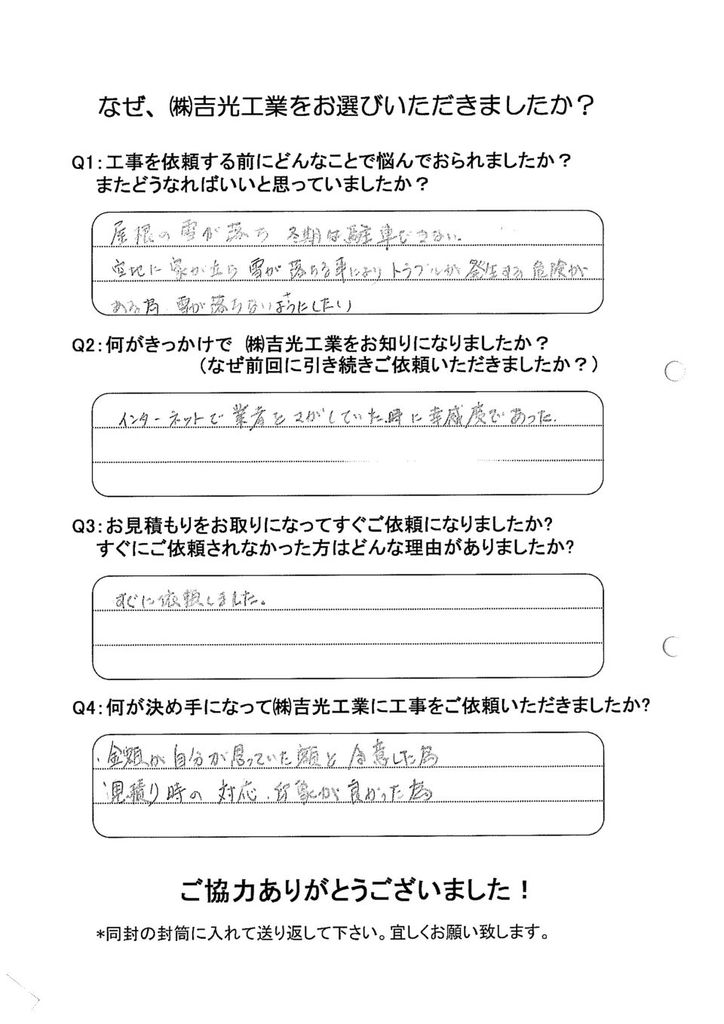 なぜ、㈱吉光工業をお選びいただきましたか？
Q1：工事を依頼する前にどんなことで悩んでおられましたか？
またどうなればいいと思っていましたか？
屋根の雪が落ち 冬期は駐車できない。
空地に家が立ち 雪が落ちる事により トラブルが発生する危険が
ある為 雪が落ちないようにしたい
Q2：何がきっかけで ㈱吉光工業をお知りになりましたか？
（なぜ前回に引き続きご依頼いただきましたか？）
インターネットで業者をさがしていた時に 高感度であった.
Q3：お見積もりをお取りになってすぐご依頼になりましたか?
すぐにご依頼されなかった方はどんな理由がありましたか?
すぐに依頼しました。
Q4：何が決め手になって㈱吉光工業に工事をご依頼いただきましたか?
・金額が自分が思っていた額と 合意した為
見積り時の 対応、印象が良かった為
ご協力ありがとうございました！
*同封の封筒に入れて送り返して下さい。宜しくお願い致します。